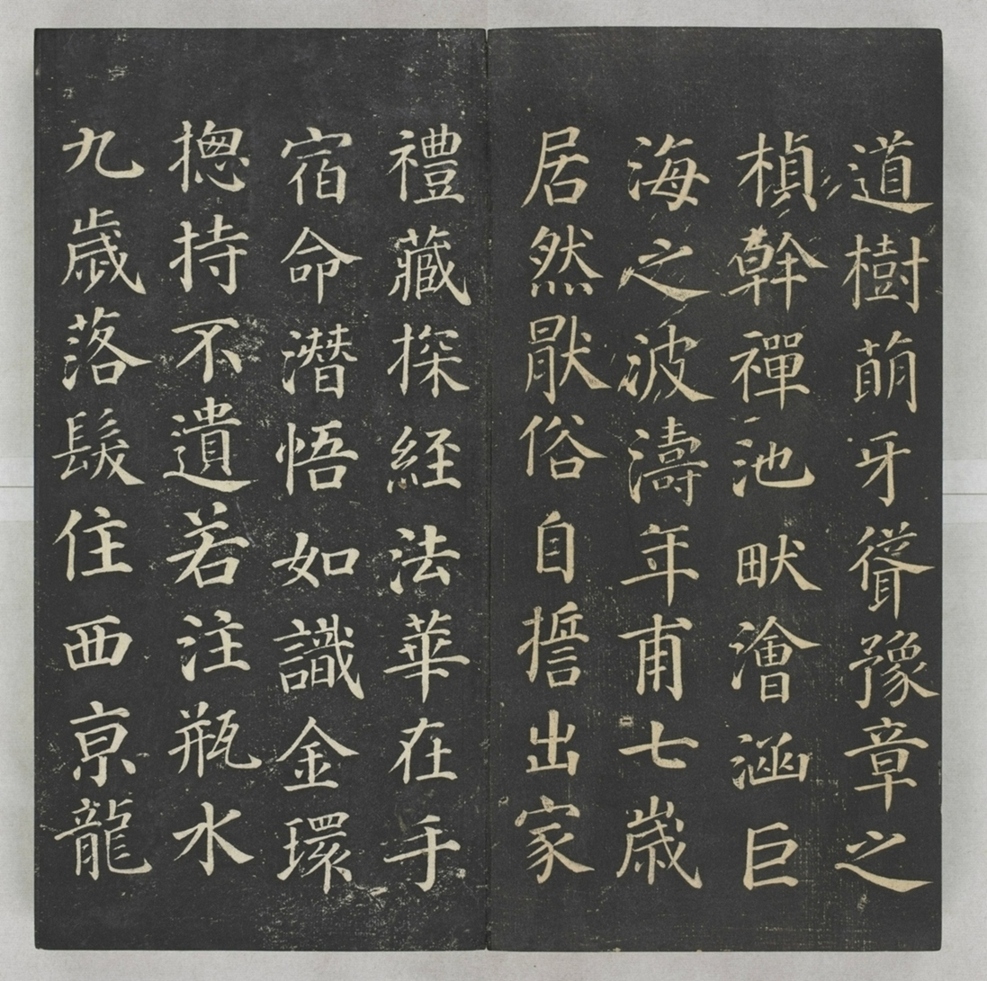 道樹萌牙聳豫章之
楨幹禪池畎澮涵巨
海之波濤年甫七歲
居然猒俗自誓出家
禮藏探経法華在手
宿命潛悟如識金環
揔持不遺若注瓶水
九歲落髮住西亰龍